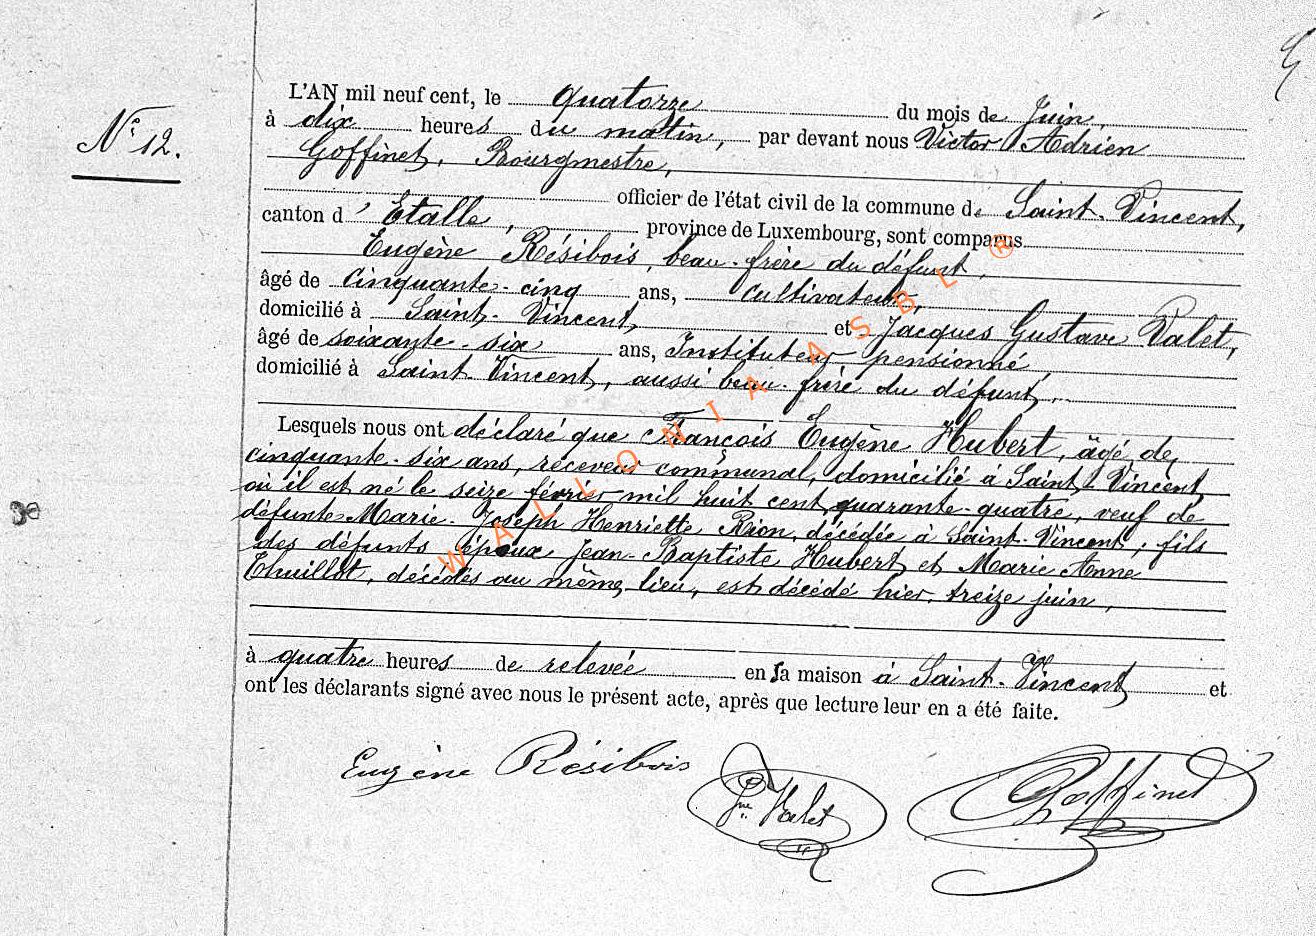 L'AN mil neuf cent, le quatorze du mois de Juin,
N° 12.
à dix heures du matin, par devant nous Victor Adrien
Goffinet, Bourgmestre,
officier de l'état civil de la commune de Saint-Vincent,
canton d'Etalle, province de Luxembourg, sont comparus
Eugène Résibois, beau-frère du défunt,
âgé de cinquante-cinq ans, cultivateur,
domicilié à Saint-Vincent, et Jacques Gustave Valet,
âgé de soixante-six ans, Instituteur pensionné,
domicilié à Saint-Vincent, aussi beau-frère du défunt,
Lesquels nous ont déclaré que François Eugène Hubert, âgé de
cinquante-six ans, receveur communal, domicilié à Saint-Vincent
où il est né le seize février mil huit cent quarante-quatre, veuf de
défunte Marie-Joseph Henriette Rion, décédée à Saint-Vincent; fils
des défunts époux Jean-Baptiste Hubert et Marie Anne
Thuillot, décédés au même lieu, est décédé hier, treize juin,
à quatre heures de relevée en sa maison à Saint-Vincent et
ont les déclarants signé avec nous le présent acte, après que lecture leur en a été faite.
Eugène Résibois
Gve Valet
Goffinet
WALLONIA ASBL ®